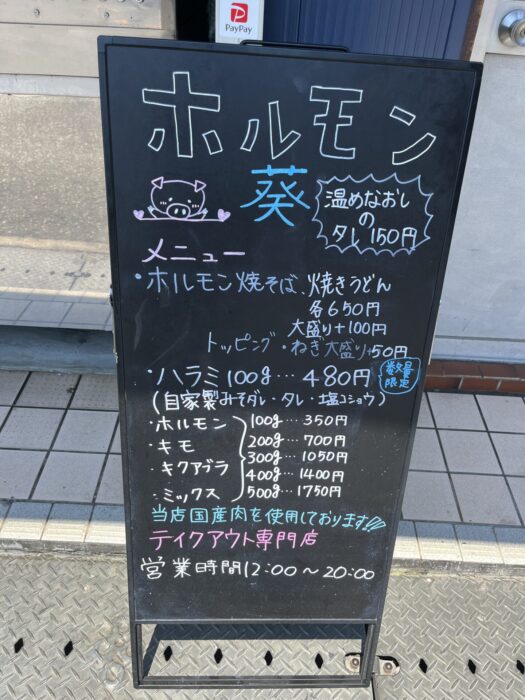 PayPay
ホルモン
葵
温めなおし
の
タレ 150円
メニュー
・ホルモン焼そば、焼きうどん
各650円
大盛り+100円
トッピング・ねぎ大盛り+50円
・ハラミ 100g…480円
数量
限定
(自家製みそダレ・タレ・塩コショウ)
・ホルモン 100g…350円
・キモ 200g…700円
300g…1050円
・キクアブラ 400g…1400円
・ミックス 500g…1750円
当店国産肉を使用しております!!!
テイクアウト専門店
営業時間12:00〜20:00